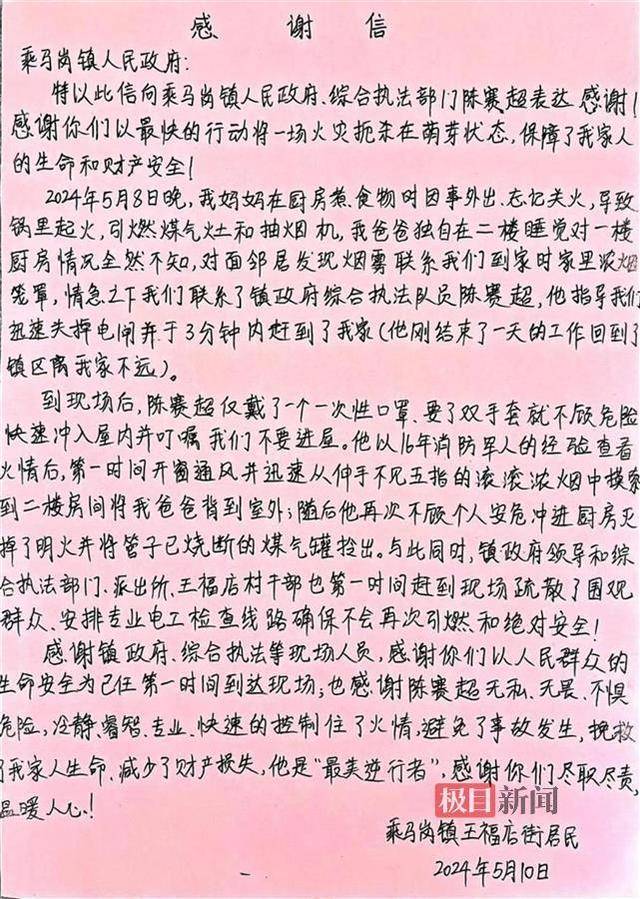 感谢信
乘马岗镇人民政府:
特以此信向乘马岗镇人民政府、综合执法部门陈赛超表达感谢!
感谢你们以最快的行动将一场火灾扼杀在萌芽状态,保障了我家人
的生命和财产安全!
2024年5月8日晚,我妈妈在厨房煮食物时因事外出、忘记关火,导致
锅里起火,引燃煤气灶和抽烟机,我爸爸独自在二楼睡觉对一楼
厨房情况全然不知,对面邻居发现烟雾联系我们到家时家里浓烟
笼罩,情急之下我们联系了镇政府综合执法队员陈赛超,他指导我们
迅速关掉电闸并于3分钟内赶到了我家(他刚结束了一天的工作回到了
镇区离我家不远)。
到现场后,陈赛超仅戴了一个一次性口罩、要了双手套就不顾危险
快速冲入屋内并叮嘱我们不要进屋。他以16年消防军人的经验查看
火情后,第一时间开窗通风并迅速从伸手不见五指的滚滚浓烟中摸索
到二楼房间将我爸爸背到室外;随后他再次不顾个人安危冲进厨房灭
掉了明火并将管子已烧断的煤气罐拎出。与此同时,镇政府领导和综
合执法部门、派出所、王福店村干部也第一时间赶到现场疏散了围观
群众、安排专业电工检查线路确保不会再次引燃和绝对安全!
感谢镇政府、综合执法等现场人员,感谢你们以人民群众的
生命安全为己任第一时间到达现场;也感谢陈赛超无私、无畏、不惧
危险,冷静、睿智、专业、快速的控制住了火情,避免了事故发生,挽救
了我家人生命、减少了财产损失,他是“最美逆行者”,感谢你们尽职尽责,
温暖人心!
极目新闻
乘马岗镇王福店街居民
2024年5月10日